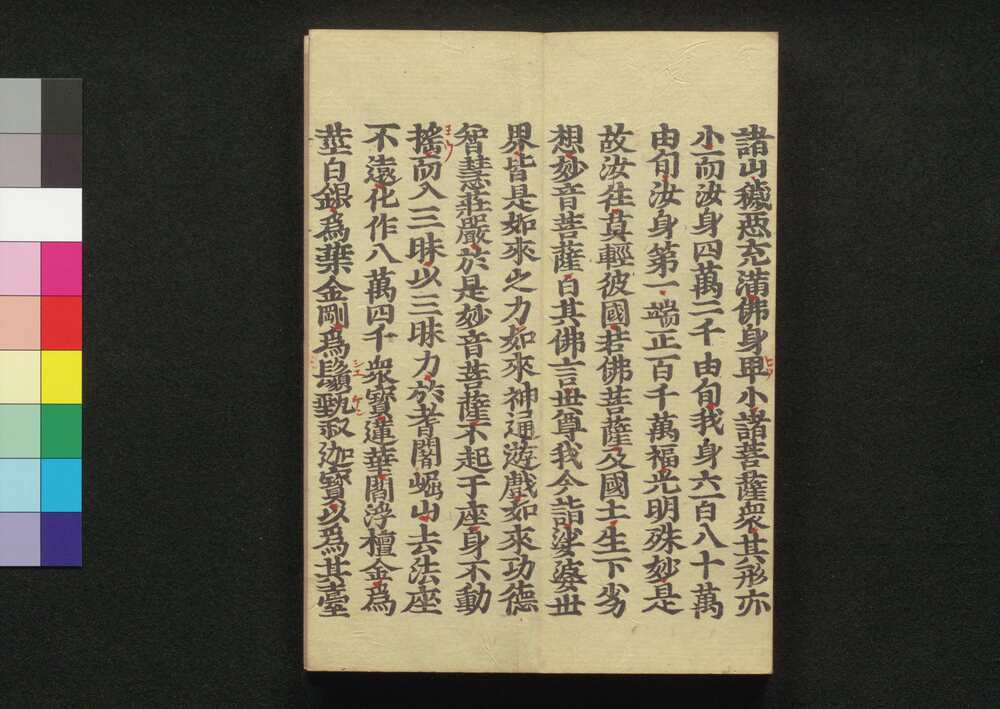 諸山穢惡充滿佛身卑小諸菩薩衆其形亦
小而汝身四萬二千由旬我身六百八十萬
由旬汝身第一端正百千萬福光明殊妙是
故汝往莫輕彼國若佛菩薩及國土生下劣
想妙音菩薩白其佛言世尊我今詣娑婆世
界皆是如來之力如來神通遊戲如來功德
智慧莊嚴於是妙音菩薩不起于座身不動
搖而入三昧以三昧力於耆闍崛山去法座
不遠化作八萬四千衆寶蓮華閻浮檀金爲
莖白銀爲葉金剛爲鬚甄叔迦寶以爲其臺